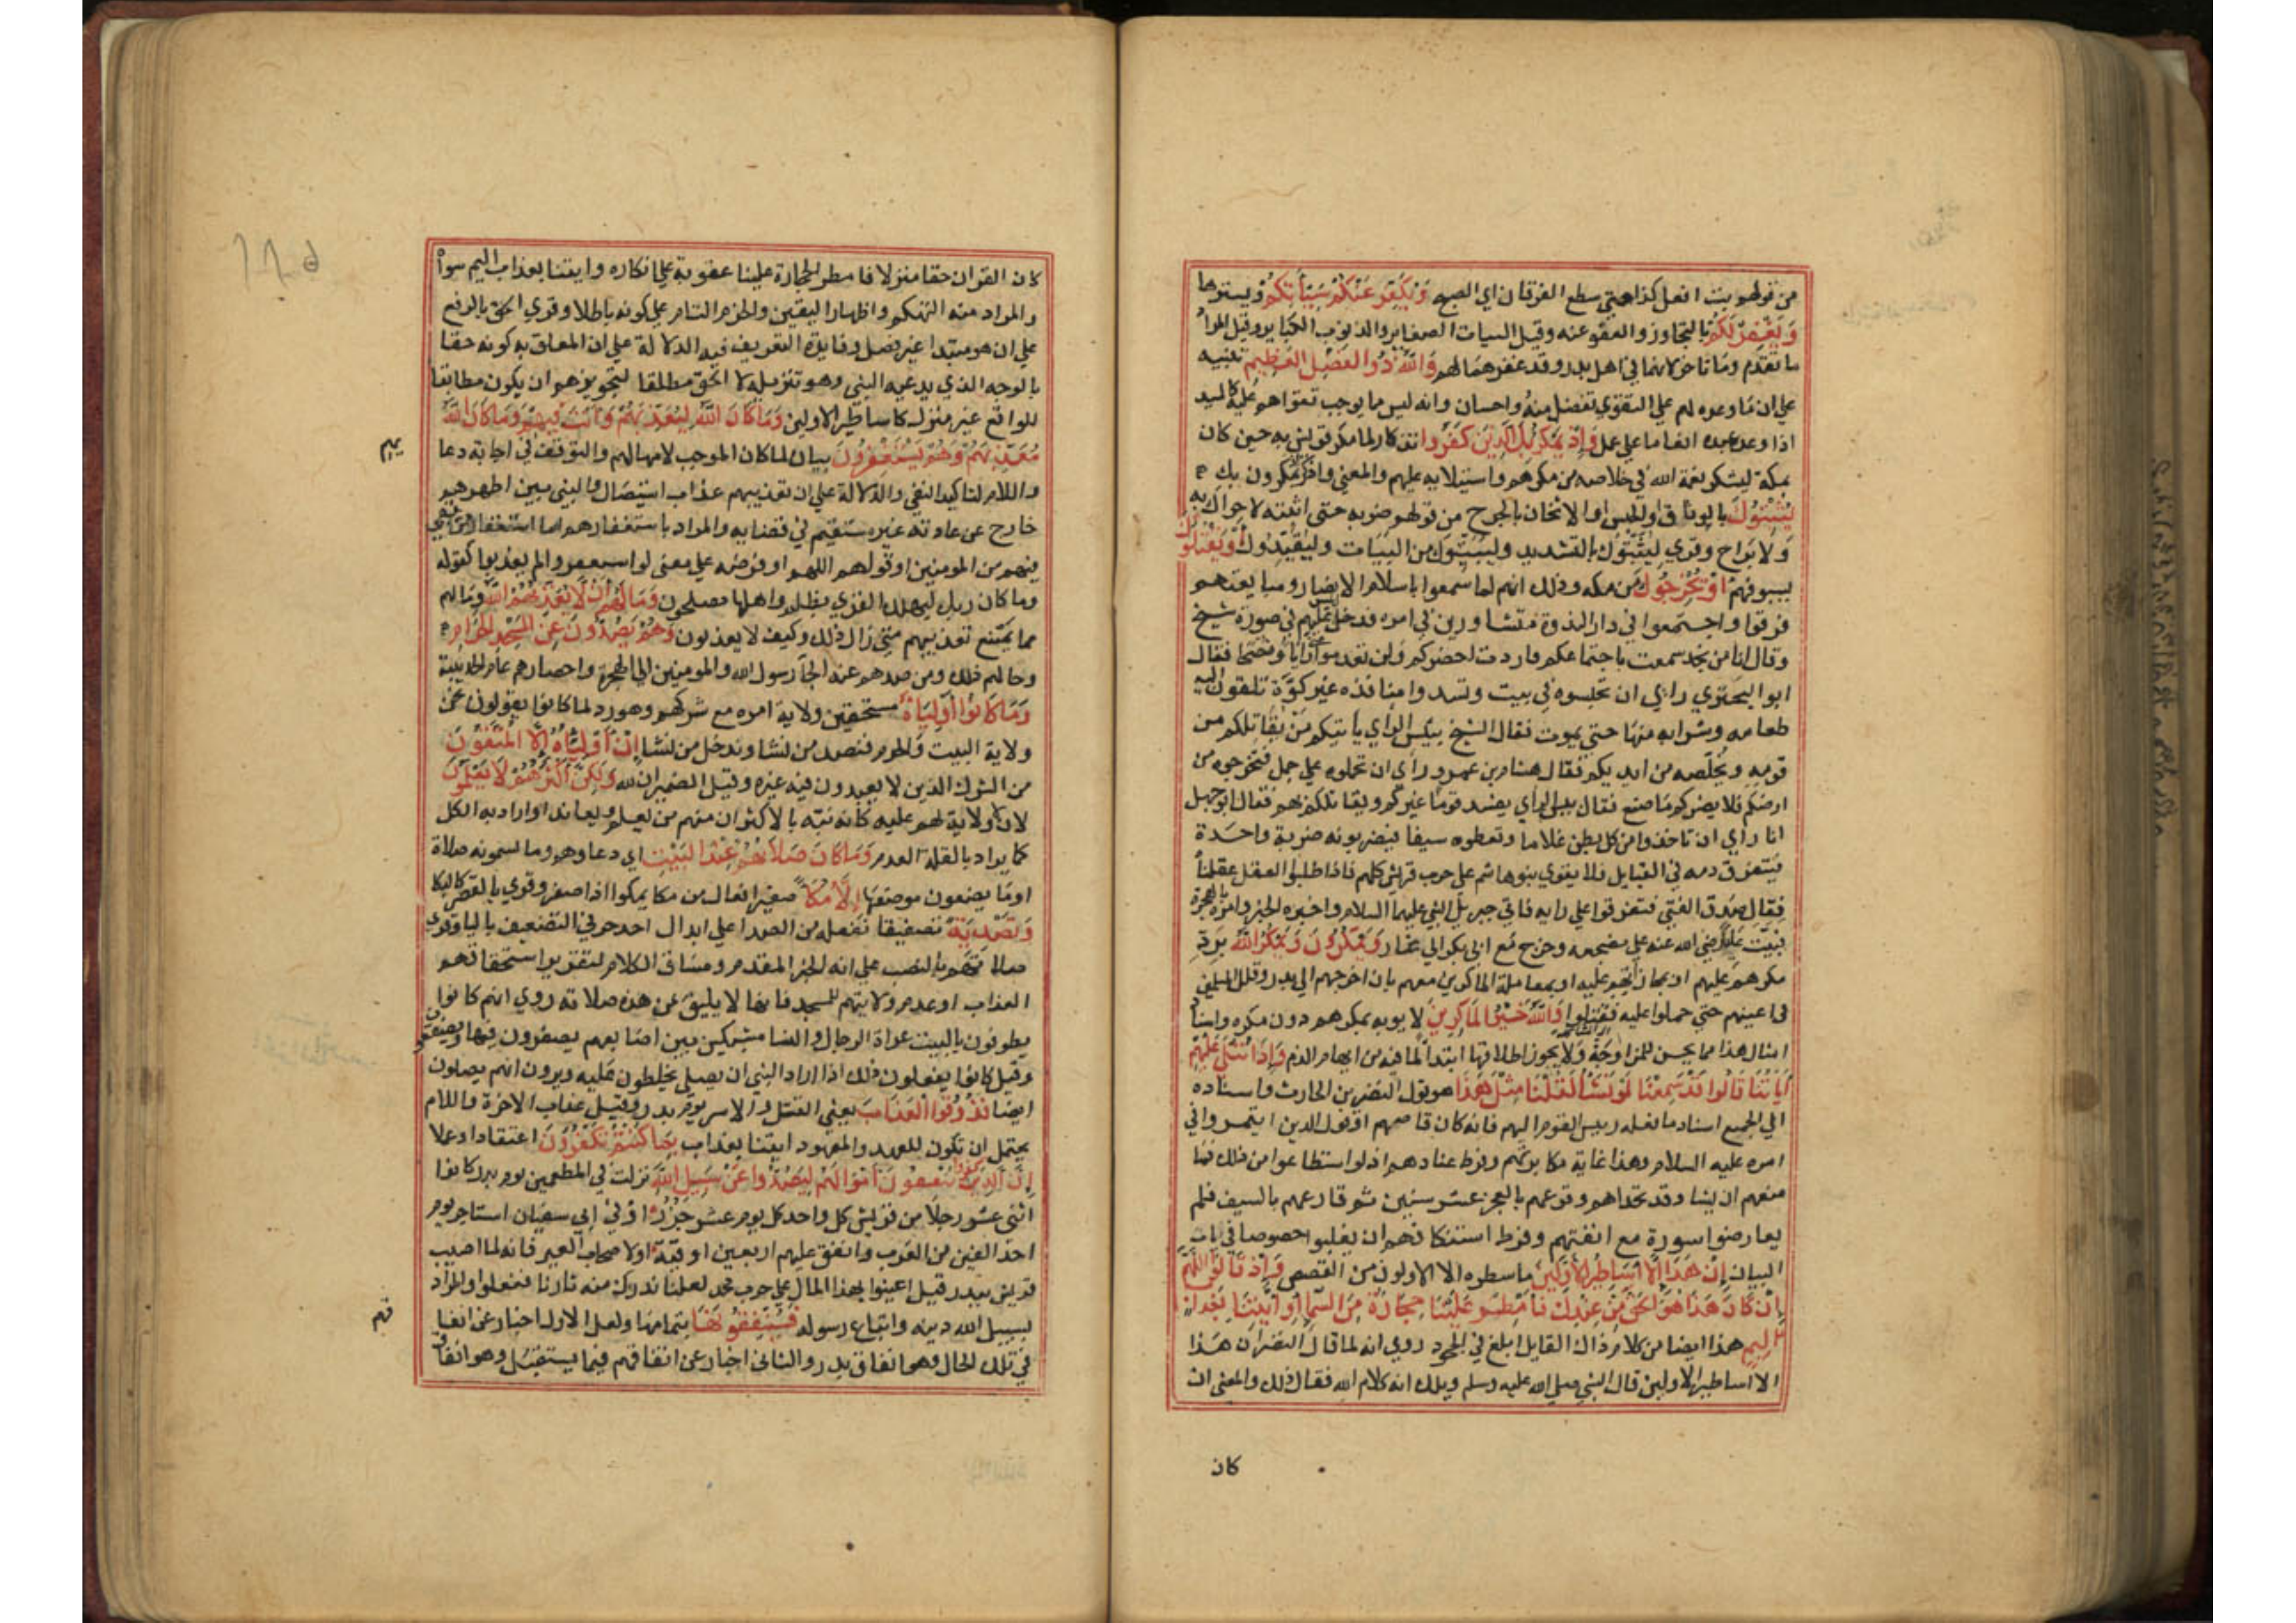 من قولهم بت افعل كذا حتي سطع الفرقان اي الصبح وَيُكَفِّرْ عَنْكُمْ سَيِّأتِكُمْ ويسترها
وَيَغْفِرْ لَكُمْ بالتجاوز والعفو عنه وقيل السيات الصغاير والذنوب الكباير وقيل المراد
ما تقدم وما تاخر لانها في اهل بدر وقد غفرهما لهم وَاللَّهُ ذُو الْفَضْلِ الْعَظِيمِ تنبيه
علي ان ما وعده لهم علي التقوي تفضل منه واحسان وانه ليس مما يوجب تقواهم عليه كالسيد
اذا وعد عبده انعاما علي عمل وَإِذْ يَمْكُرُ بِكَ الَّذِينَ كَفَرُوا تذكار لما مكر قريش به حين كان
بمكة ليشكر نعمة الله في خلاصه من مكرهم واستيلايه عليهم والمعني واذكر اذ يمكرون بك
لِيُثْبِتُوكَ بالوثاق او الحبس او الاثخان بالجرح من قولهم ضربه حتي اثبته لا حراك به
ولا براح وقري ليُثَبِّتُوك بالتشديد وليُبَيِّتُوك من البيات وليُقَيِّدُوك أَوْ يَقْتُلُوكَ
بسيوفهم أَوْ يُخْرِجُوكَ من مكه وذلك انهم لما سمعوا باسلام الانصار ومبايعتهم
فرقوا واجتمعوا في دار الندوة متشاورين في امره فدخل عليهم ابليس في صورة شيخ
وقال انا من نجد سمعت باجتماعكم فاردت احضركم ولن تعدموا مني رأيا ونصحا فقال
ابو البحتري رايي ان تحبسوه في بيت وتسدوا منافذه غير كوّة تلقون اليه
طعامه وشرابه منها حتي يموت فقال الشيخ بيس الرأي يأتيكم من يقاتلكم من
قومه ويخلّصه من ايديكم فقال هشام بن عمرو رأي ان تحملوه علي جمل فتخرجوه من
ارضكم فلا يضركم ما صنع فقال بيس الرأي يفسد قوما غيركم ويقاتلكم بهم فقال ابو جهل
انا راي ان تاخذوا من كل بطن غلاما وتعطوه سيفا فيضربونه ضربة واحدة
فيتفرق دمه في القبايل فلا يقوي بنو هاشم علي حرب قريش كلهم فاذا طلبوا العقل عقلنا
فقال صدق الفتي فتفرقوا علي رايه فاتي جبريل النبي عليهما السلام واخبره الخبر وامره بالهجرة
فبيت عليا رضي الله عنه علي مضجعه وخرج مع ابي بكر الي الغار وَيَمْكُرُونَ وَيَمْكُرُ اللَّهُ برد
مكرهم عليهم او بمجازاتهم عليه او بمعاملة الماكرين معهم بان اخرجهم الي بدر وقلل المسلمين
في اعينهم حتي حملوا عليه فقتلوا وَاللَّهُ خَيْرُ الْمَاكِرِينَ لا يوبه بمكرهم دون مكره واسناد
امثال هذا مما يحسن للمزاوجة ولا يجوز اطلاقها ابتدأ لما فيه من ايهام الذم وَإِذَا تُتْلَى عَلَيْهِمْ
آيَاتُنَا قَالُوا قَدْ سَمِعْنَا لَوْ نَشَأُ لَقُلْنَا مِثْلَ هَذَا هو قول النضر بن الحارث واسناده
الي الجميع اسناد ما فعله رييس القوم اليهم فانه كان قاصهم او قول الذين ايتمروا في
امره عليه السلام وهذا غاية مكابرتهم وفرط عنادهم اذ لو استطاعوا من ذلك فما
منعهم ان يشا وقد تحداهم وقرعهم بالعجز عشر سنين ثم قارعهم بالسيف فلم
يعارضوا سورة مع انفتهم وفرط استنكافهم ان يغلبوا خصوصا في باب
البيان إِنْ هَذَا إِلَّا أَسَاطِيرُ الْأَوَّلِينَ ما سطره الا الاولون من القصص وَإِذْ قَالُوا اللَّهُمَّ
إِنْ كَانَ هَذَا هُوَ الْحَقَّ مِنْ عِنْدِكَ فَأَمْطِرْ عَلَيْنَا حِجَارَةً مِنَ السَّمَا أَوِ ائْتِنَا بِعَذَابٍ
أَلِيمٍ هذا ايضا من كلام ذاك القايل ابلغ في الجحود روي انه لما قال النضر ان هذا
الا اساطير الاولين قال النبي صلي الله عليه وسلم ويلك انه كلام الله فقال ذلك والمعني ان
كان
كان القران حقا منزلا فامطر الحجارة علينا عقوبة علي انكاره وايتنا بعذاب اليم سواه
والمراد منه التهكم واظهار اليقين والجزم التام علي كونه باطلا وقري الحق بالرفع
علي ان هو مبتدا غير فصل وفايدة التعريف فيه الدلالة علي ان المعلق به كونه حقا
بالوجه الذي يدعيه النبي وهو تنزيله لا الحق مطلقا لتجويزهم ان يكون مطابقا
للواقع غير منزل كاساطير الاولين وَمَا كَانَ اللَّهُ لِيُعَذِّبَهُمْ وَأَنْتَ فِيهِمْ وَمَا كَانَ اللَّهُ
مُعَذِّبَهُمْ وَهُمْ يَسْتَغْفِرُونَ بيان لما كان الموجب لامهالهم والتوقف في اجابة دعا
واللام لتاكيد النفي والدلالة علي ان تعذيبهم عذاب استيصال والنبي بين اظهرهم
خارج عن عادته غير مستقيم في قضايه والمراد باستغفارهم اما استغفار من بقي
فيهم من المومنين او قولهم اللهم او فرضه علي معني لو استغفروا لم يعذبوا كقوله
وما كان ربك ليهلك القري بظلم واهلها مصلحون وَمَا لَهُمْ أَنْ لَا يُعَذِّبَهُمُ اللَّهُ وما لهم
مما يمنع تعذيبهم متي زال ذلك وكيف لا يعذبون وَهُمْ يَصُدُّونَ عَنِ الْمَسْجِدِ الْحَرَامِ
وحالهم ذلك ومن صدهم عنه الجأ رسول الله والمومنين الي الهجرة واحصارهم عام الحديبية
وَمَا كَانُوا أَوْلِيَاءَهُ مستحقين ولاية امره مع شركهم وهو رد لما كانوا يقولون نحن
ولاة البيت والحرم فنصد من نشا وندخل من نشا إِنْ أَوْلِيَاؤُهُ إِلَّا الْمُتَّقُونَ
من الشرك الذين لا يعبدون فيه غيره وقيل الضميران لله وَلَكِنَّ أَكْثَرَهُمْ لَا يَعْلَمُونَ
لان لا ولاية لهم عليه كأنه نبّه بالاكثر ان منهم من يعلم ويعاند او اراد به الكل
كما يراد بالقلة العدم وَمَا كَانَ صَلَاتُهُمْ عِنْدَ الْبَيْتِ اي دعاوهم وما يسمونه صلاة
او ما يضعون موضعها إِلَّا مُكَاءً صفيرا فعال من مكا يمكوا اذا صفر وقري بالقصر كالبكا
وَتَصْدِيَةً تصفيقا تفعله من الصدا علي ابدال احد حرفي التضعيف باليا وقري
صلاتهم بالنصب علي انه الخبر المقدم ومساق الكلام لتقرير استحقاقهم
العذاب او عدم ولايتهم للمسجد فانها لا يليق عن هذه صلاته روي انهم كانوا
يطوفون بالبيت عراة الرجال والنسا مشبكين بين اصابعهم يصفرون فيها ويصفقون
وقيل كانوا يفعلون ذلك اذا اراد النبي ان يصلي يخلطون عليه ويرون انهم يصلون
ايضا فَذُوقُوا الْعَذَابَ يعني القتل والاسر يوم بدر وقيل عذاب الاخرة واللام
يحتمل ان تكون للعهد والمعهود ايتنا بعذاب بِمَا كُنْتُمْ تَكْفُرُونَ اعتقادا وعملا
إِنَّ الَّذِينَ كَفَرُوا يُنْفِقُونَ أَمْوَالَهُمْ لِيَصُدُّوا عَنْ سَبِيلِ اللَّهِ نزلت في المطعمين يوم بدر كانوا
اثني عشر رجلا من قريش كل واحد كل يوم عشر جزر او في ابي سفيان استاجر يوم
احد الفين من العرب وانفق عليهم اربعين اوقية او لاصحاب العير فانه لما اصيب
قريش ببدر قيل اعينوا بهذا المال علي حرب محمد لعلنا ندرك منه ثارنا ففعلوا والمراد
بسبيل الله دينه واتباع رسوله فَسَيُنْفِقُونَهَا بتمامها ولعل الاول اخبار عن انفا
في تلك الحال وهو انفاق بدر والثاني اخبار عن انفاقهم فيما يستقبل وهو انفاق